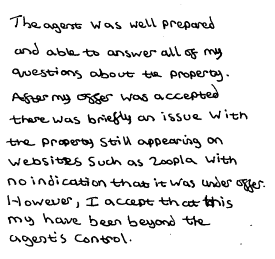 The agent was well prepared
and able to answer all of my
questions about the property.
After my offer was accepted
there was briefly an issue with
the property still appearing on
websites such as Zoopla with
no indication that it was under offer.
However, I accept that this
my have been beyond the
agent's control.